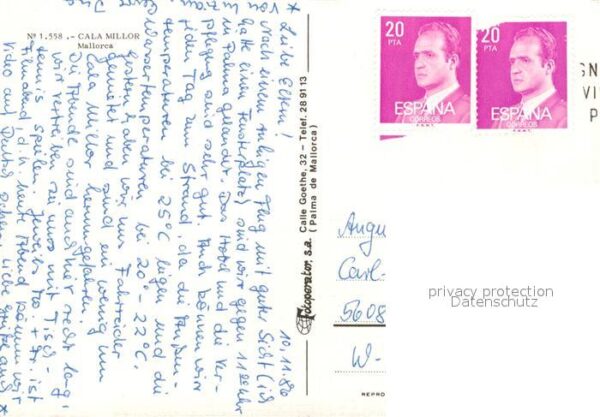 Nº 1.558 .- CALA MILLOR
Mallorca
10.11.86
Liebe Eltern!
Nach einem ruhigen Flug mit guter Sicht (ich
hatte einen Fensterplatz) sind wir gegen 11 Uhr
in Palma gelandet. Das Hotel und die Ver-
pflegung sind sehr gut. Auch können wir
jeden Tag zum Strand, da die Außen-
temperaturen bei 25°C liegen und die
Wassertemperaturen bei 20°-22°C.
Gestern haben wir uns Fahrräder
gemietet und sind ein wenig um
Cala Millor herumgefahren.
Die Abende sind auch nicht recht lang,
wir vertreiben sie uns mit Tisch-
tennis spielen. Jeweils Mo. + Fr. ist
Filmabend, d.h. heute Abend können wir
Video auf Deutsch sehen. Liebe Grüße auch
Fotoperator, s.a. Calle Goethe, 32 - Telef. 28 91 13
(Palma de Mallorca)
20
PTA
ESPAÑA
CORREOS
F.N.M.T.
20
PTA
ESPAÑA
CORREOS
F.N.M.T.
GN
VI
P
Augu
Carl-
5608
W-
REPRO
privacy protection
Datenschutz